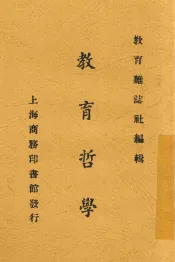 教育雜誌社編輯
教育哲學
上海商務印書館發行